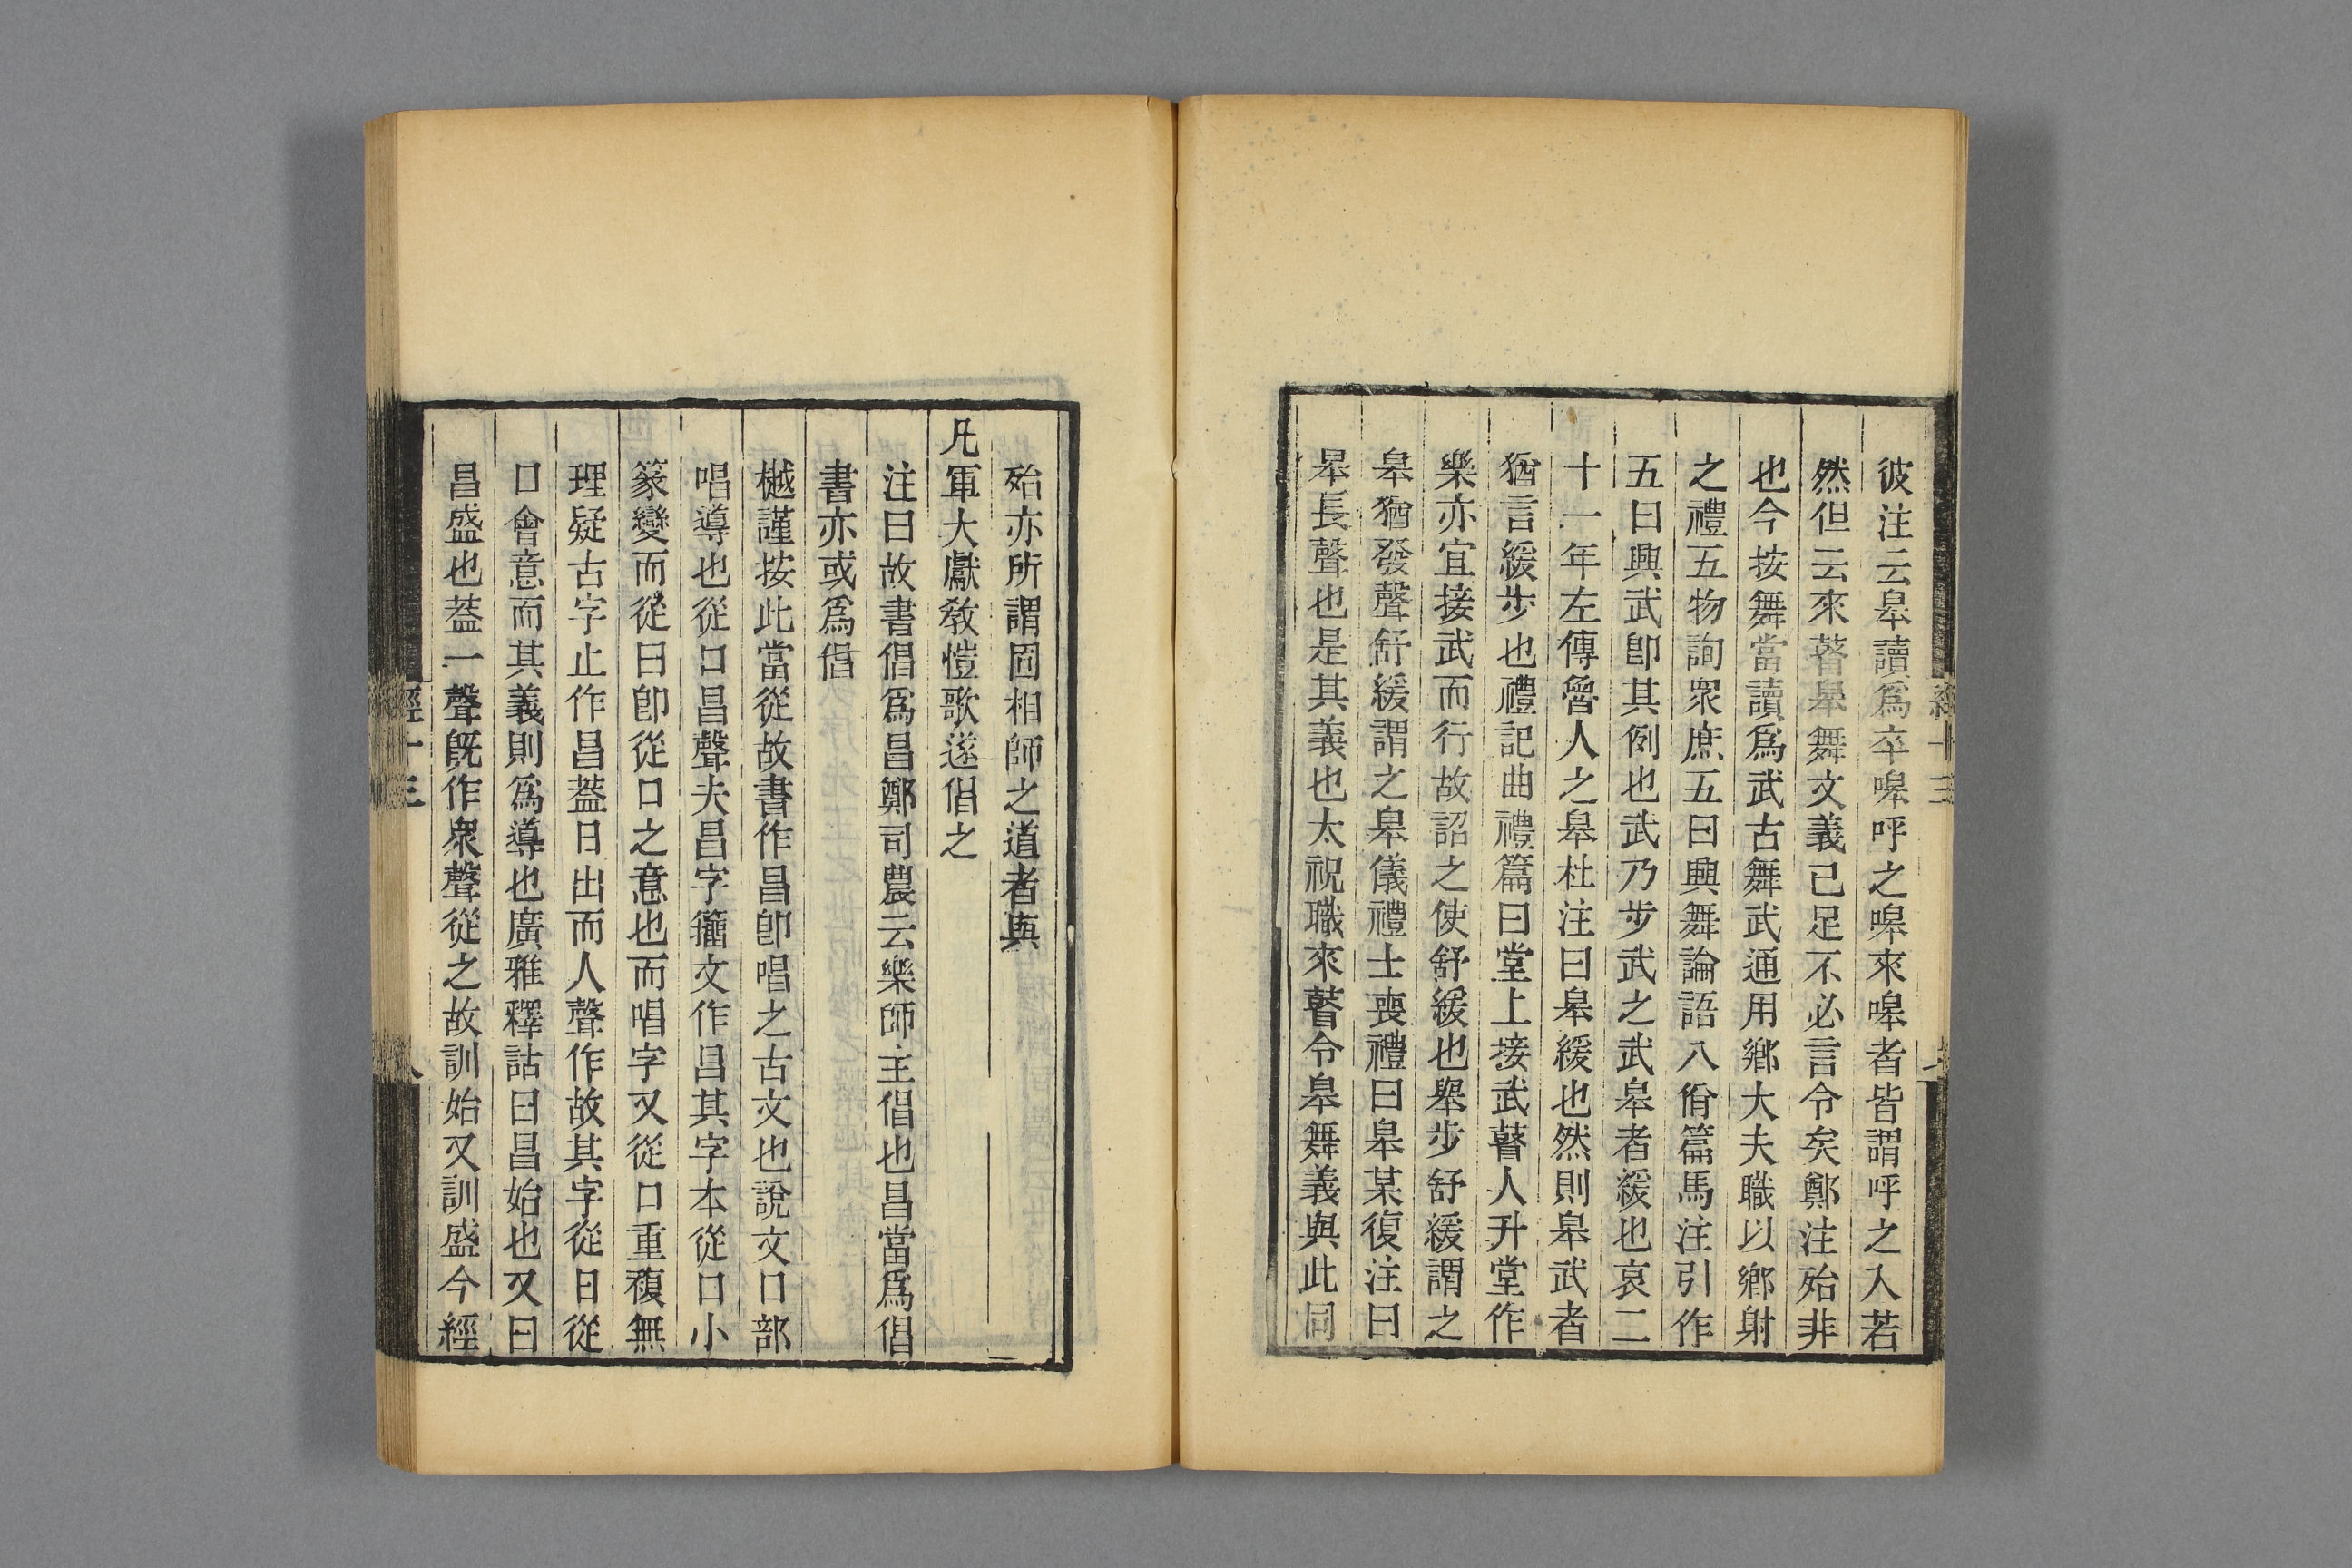 彼注云皋讀爲卒嘷呼之嘷來嘷者皆謂呼之入若
然但云來瞽皋舞文義已足不必言令矣鄭注殆非
也今按舞當讀爲武古舞武通用鄉大夫職以鄉射
之禮五物詢衆庶五曰興舞論語八佾篇馬注引作
五曰興武卽其例也武乃步武之武皋者緩也哀二
十一年左傳魯人之皋杜注曰皋緩也然則皋武者
猶言緩步也禮記曲禮篇曰堂上接武瞽人升堂作
樂亦宜接武而行故詔之使舒緩也舉步舒緩謂之
皋猶發聲舒緩謂之皋儀禮士喪禮曰皋某復注曰
皋長聲也是其義也太祝職來瞽令皋舞義與此同
經十三
七
殆亦所謂固相師之道者與
凡軍大獻敎愷歌遂倡之
注曰故書倡爲昌鄭司農云樂師主倡也昌當爲倡
書亦或爲倡
樾謹按此當從故書作昌卽唱之古文也說文口部
唱導也從口昌聲夫昌字籒文作昌其字本從口小
篆變而從曰卽從口之意也而唱字又從口重複無
理疑古字止作昌葢日出而人聲作故其字從日從
口會意而其義則爲導也廣雅釋詁曰昌始也又曰
昌盛也葢一聲旣作衆聲從之故訓始又訓盛今經
經十三
八